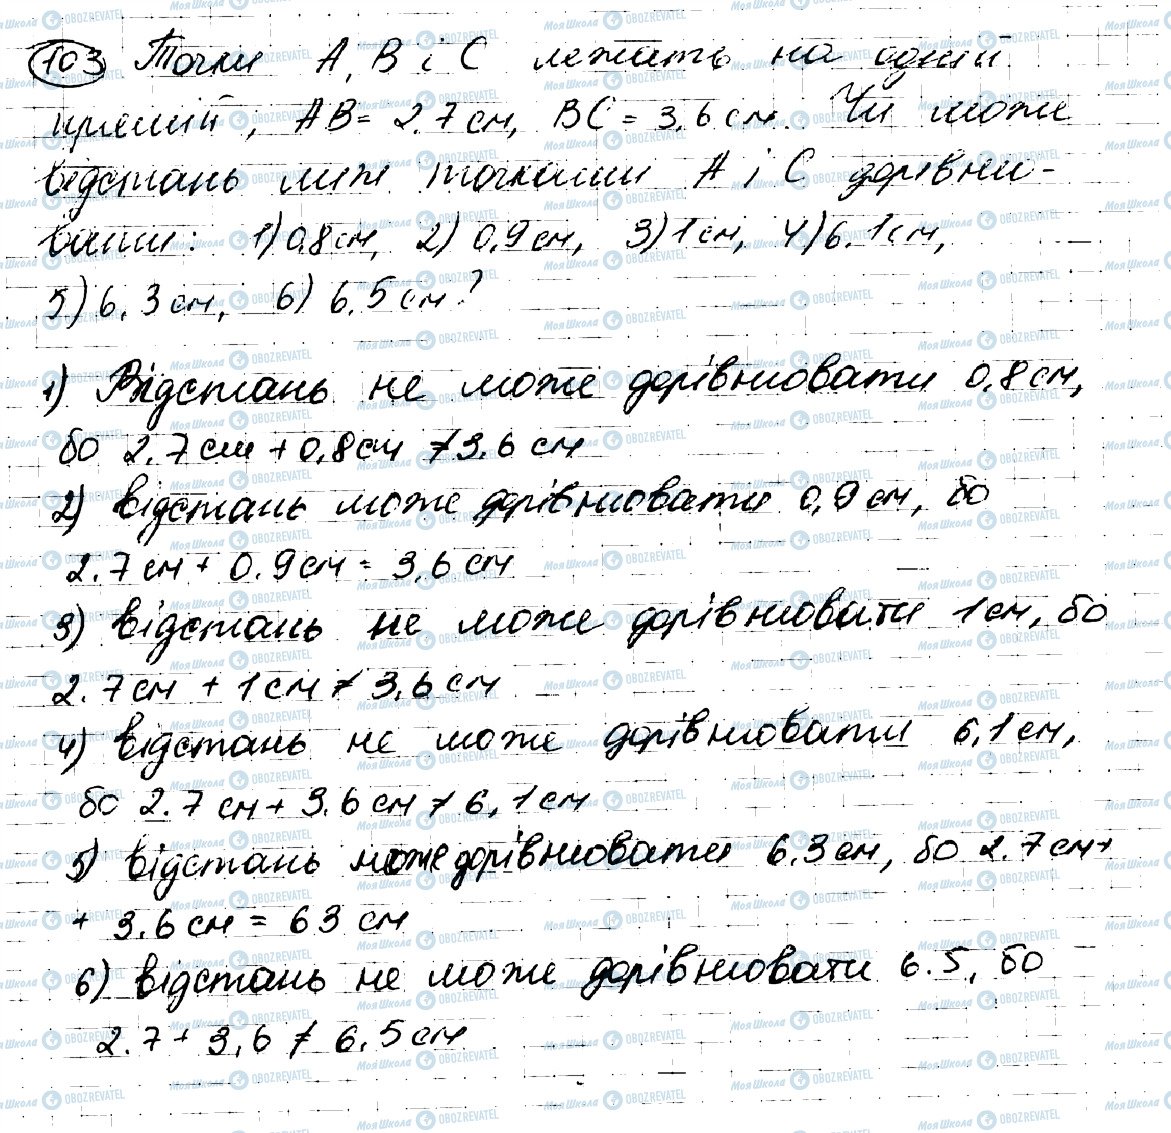 103 Точки А, В і С лежать на одній
прямій, АВ = 2.7 см, ВС = 3,6 см. Чи може
відстань між точками А і С дорівню-
вати: 1) 0,8 см, 2) 0,9 см, 3) 1 см, 4) 6.1 см,
5) 6.3 см, 6) 6.5 см?
1) Відстань не може дорівнювати 0,8 см,
бо 2.7 см + 0,8 см ≠ 3.6 см
2) відстань може дорівнювати 0,9 см, бо
2.7 см + 0.9 см = 3,6 см
3) відстань не може дорівнювати 1 см, бо
2.7 см + 1 см ≠ 3,6 см
4) відстань не може дорівнювати 6,1 см,
бо 2.7 см + 3.6 см ≠ 6,1 см
5) відстань може дорівнювати 6.3 см, бо 2.7 см +
+ 3.6 см = 63 см
6) відстань не може дорівнювати 6.5, бо
2.7 + 3,6 ≠ 6,5 см